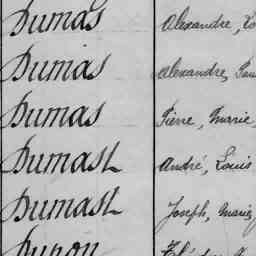 Dumas Alexandre,
Dumas Alexandre,
Dumas Pierre, Marie,
Dumast André, Louis
Dumast Joseph, Marie,